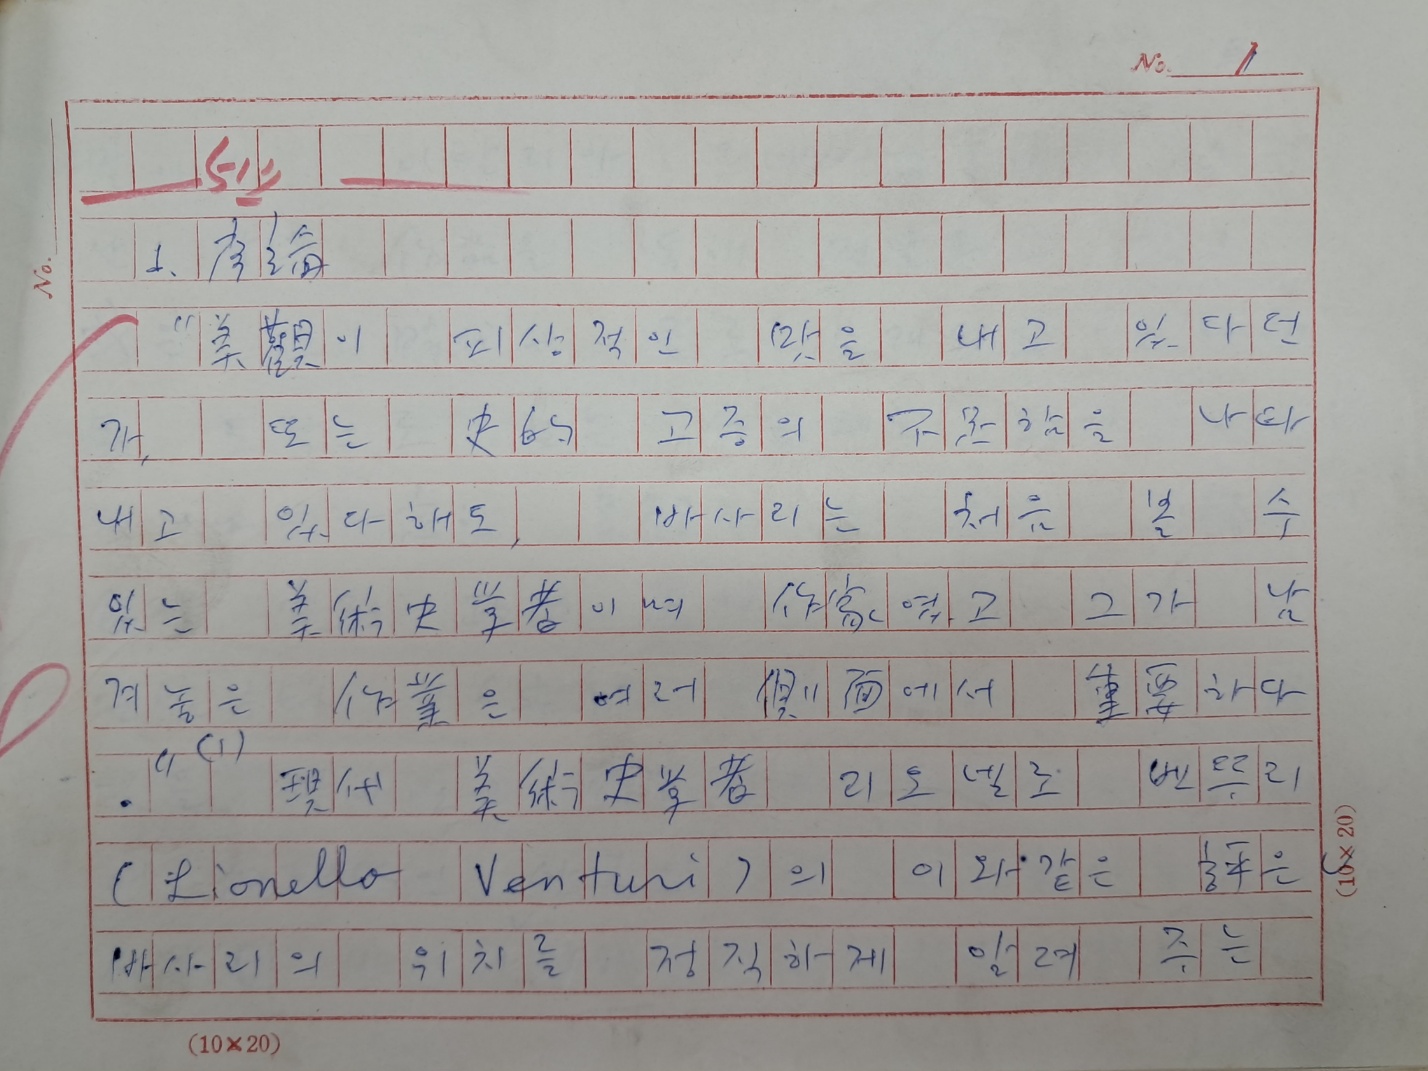 No. 1
No.
1. 序論
"美觀이 피상적인 맛을 내고 있다던
가, 또는 史的 고증의 조잡함을 나타
내고 있다해도, 바사리는 처음 볼 수
있는 美術史學者이며 偉大였고 그가 남
겨놓은 作業은 여러 側面에서 重要하다
."(1) 現代 美術史學者 리오넬로 벤뚜리
(Lionello Venturi)의 이와 같은 評은
바사리의 위치를 정직하게 알려 주는
(10×20)
(10×20)